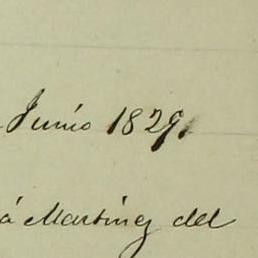 Junio 1829.
á Martinez del